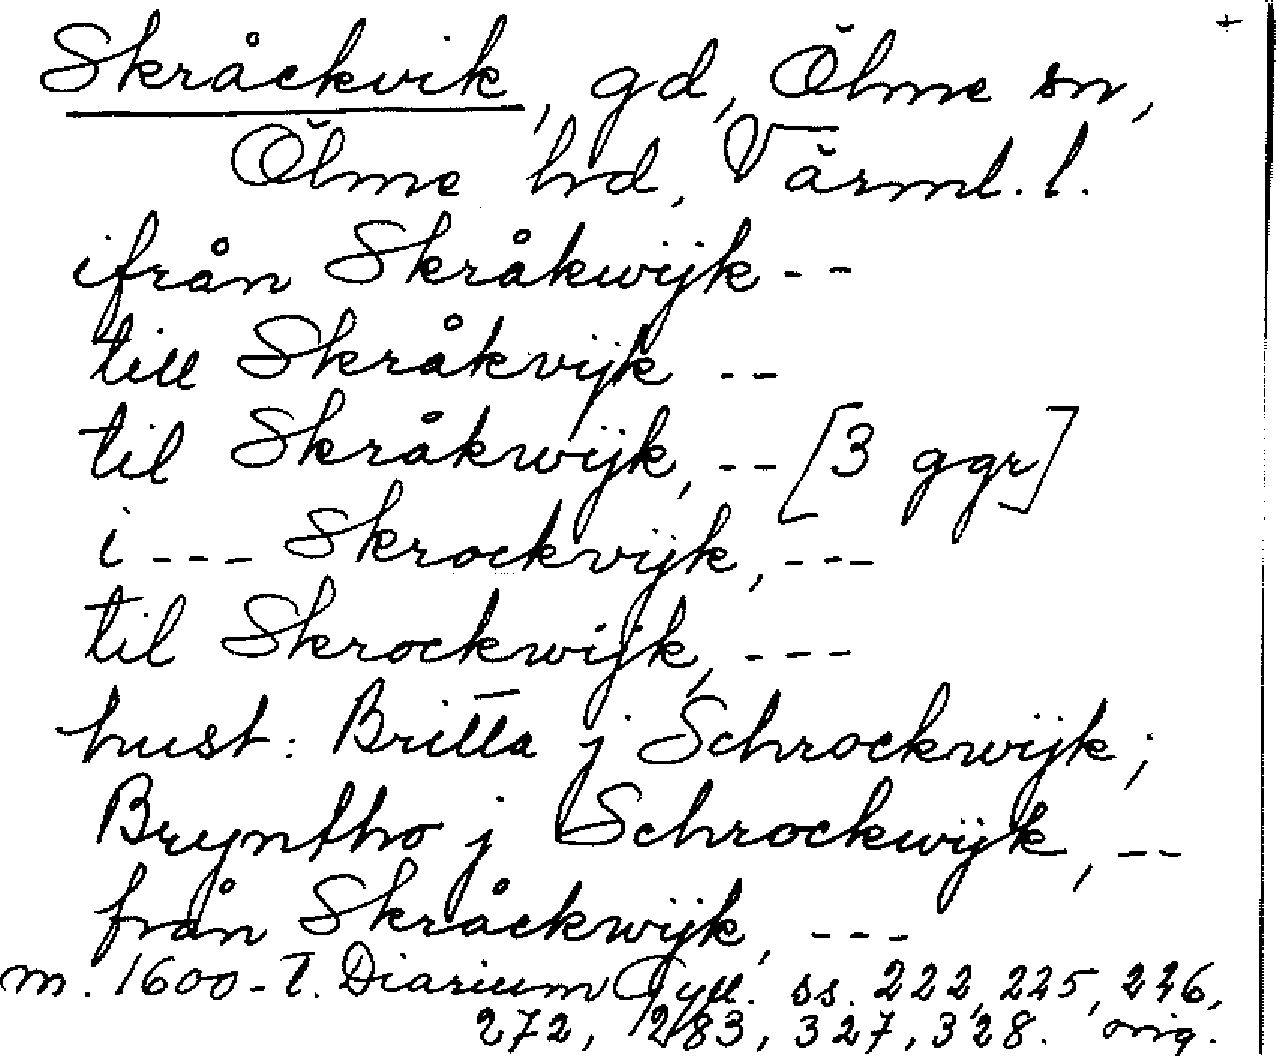 +
Skråckvik, gd, Ölme sn,
Ölme hd, Värml. l.
ifrån Skråkwijk --
till Skråkvijk --
til Skråkwijk, -- [3 ggr]
i --- Skrockvijk, ---
til Skrockwijk, ---
hust: Britta j Schrockwijk;
Bryntho j Schrockwijk, --
från Skråckwijk, ---
m. 1600-t. Diarium Gyll. ss. 222, 225, 226,
272, 283, 327, 328. orig.